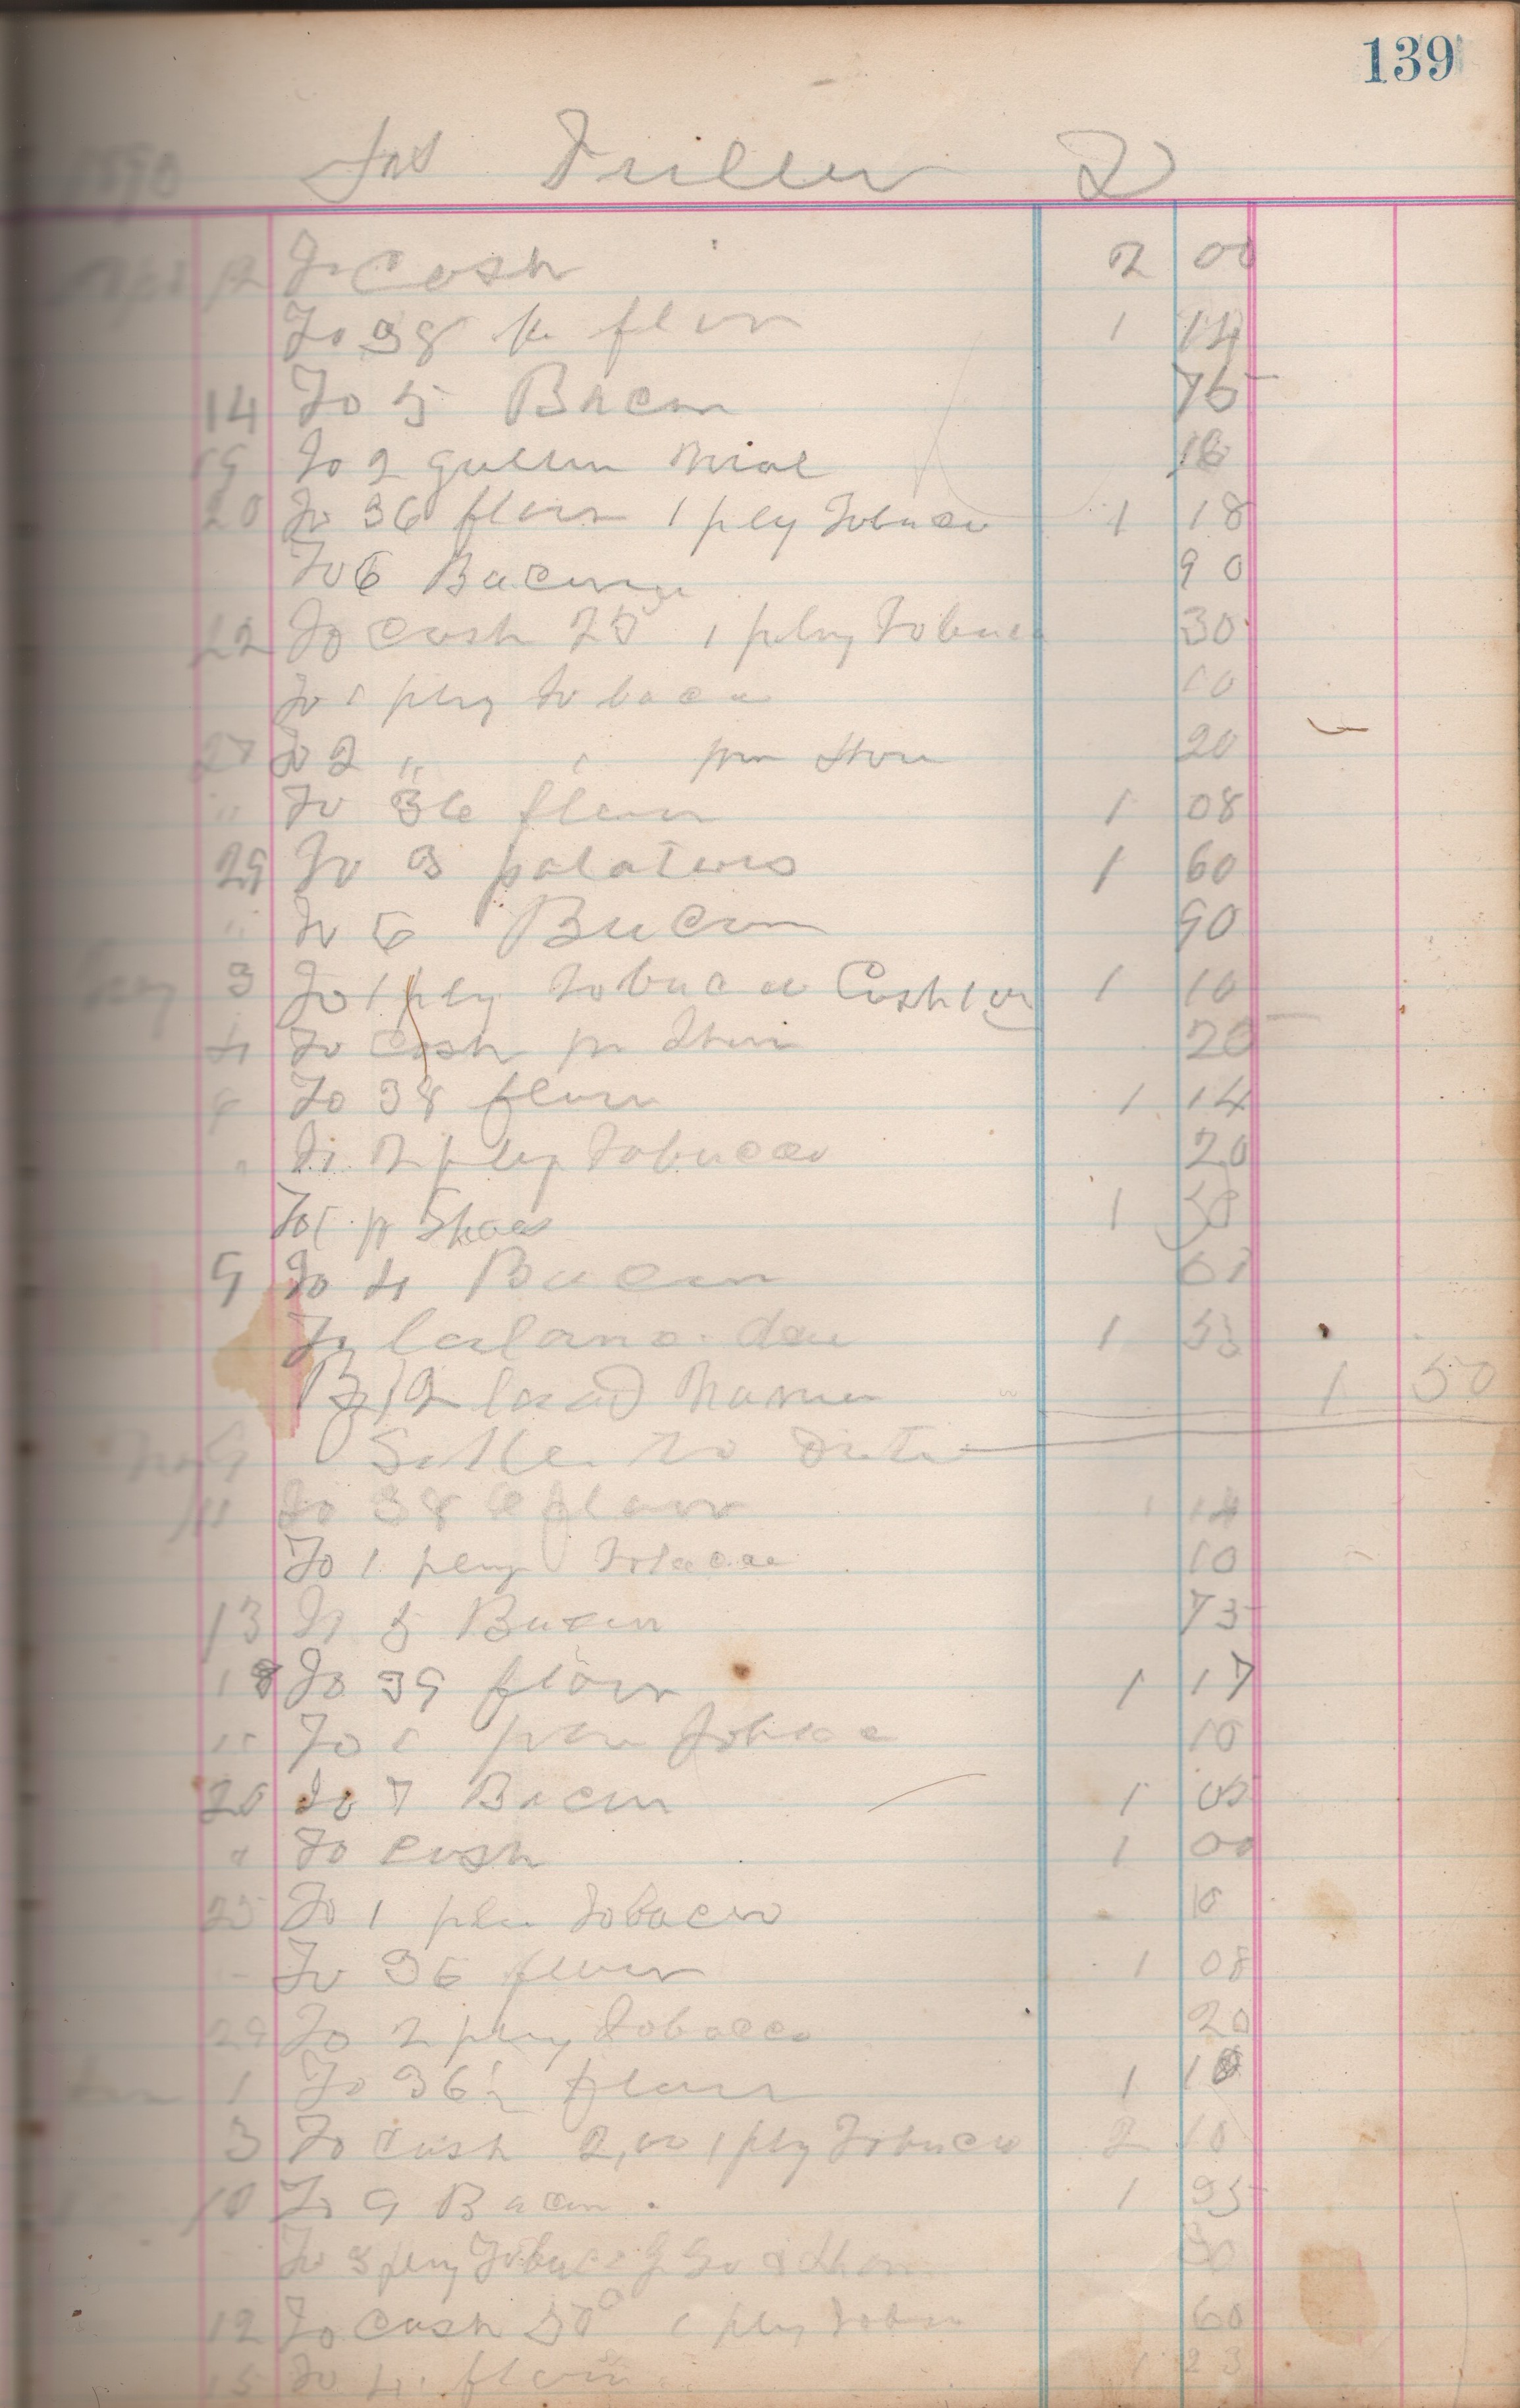 139
1890 Jas Fuller D
12 To Cash 2 00
To 38 flour 1 14
14 To 5 Bacon 75
19 To 2 gallon Meal
20 To 36 flour 1 plug Tobacco 1 18
To 6 Bacon 90
22 To Cash 20 1 plug Tobacco 30
To 1 plug tobacco 10
27 To 2 " " 20
" To 36 flour 1 08
29 To 3 potatoes 1 60
" To 6 Bacon 90
3 To 1 plug tobacco Cash 1 00 1 10
4 To Cash 20
8 To 38 flour 1 14
" To 2 plug tobacco 20
To 1 pr Shoes 1 50
9 To 4 Bacon
To balance due 1 53
By 12 load 1 50
9 Settle to Date
11 To 38 flour 1 14
To 1 plug tobacco 10
13 To 5 Bacon 75
18 To 39 flour 1 17
" To 1 plug tobacco 10
20 To 7 Bacon 1 05
" To Cash 1 00
25 To 1 plug tobacco 10
To 36 flour 1 08
29 To 2 plug tobacco 20
1 To 36½ flour 1 10
3 To Cash 2,00 1 plug Tobacco 2 10
10 To 9 Bacon 1 35
To 3 plug Tobacco 30
12 To Cash 50 1 plug 60
15 To 41 flour 1 23